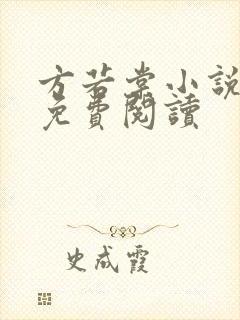 方若棠小說
免費閱讀
史成霞